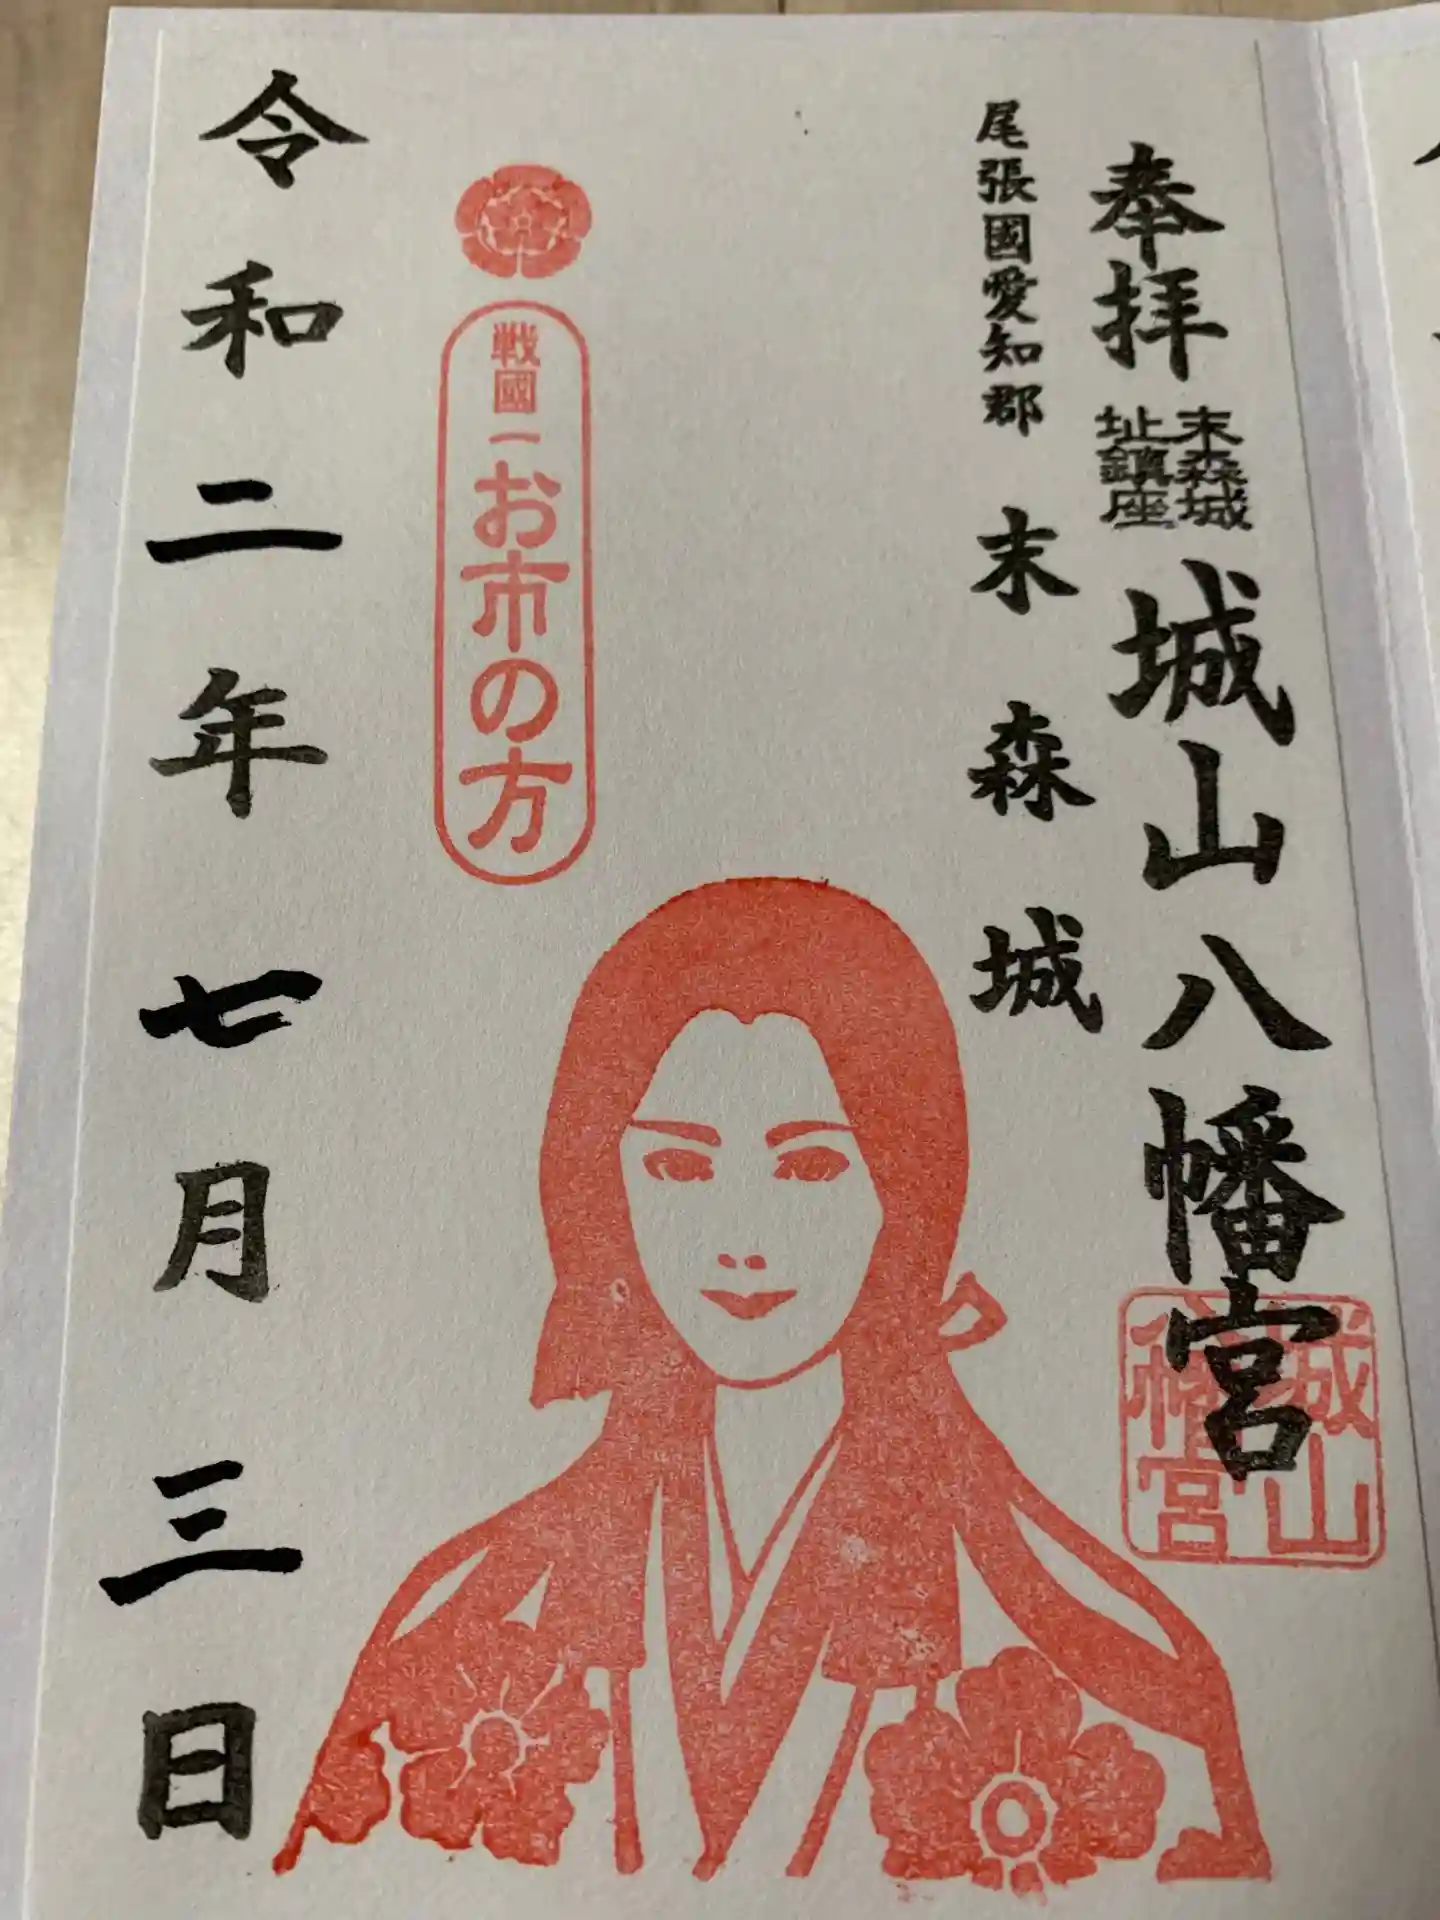 奉拝
末森城
址鎮座
城山八幡宮
城山
八幡宮
尾張國愛知郡 末森城
戦國一お市の方
令和二年七月三日